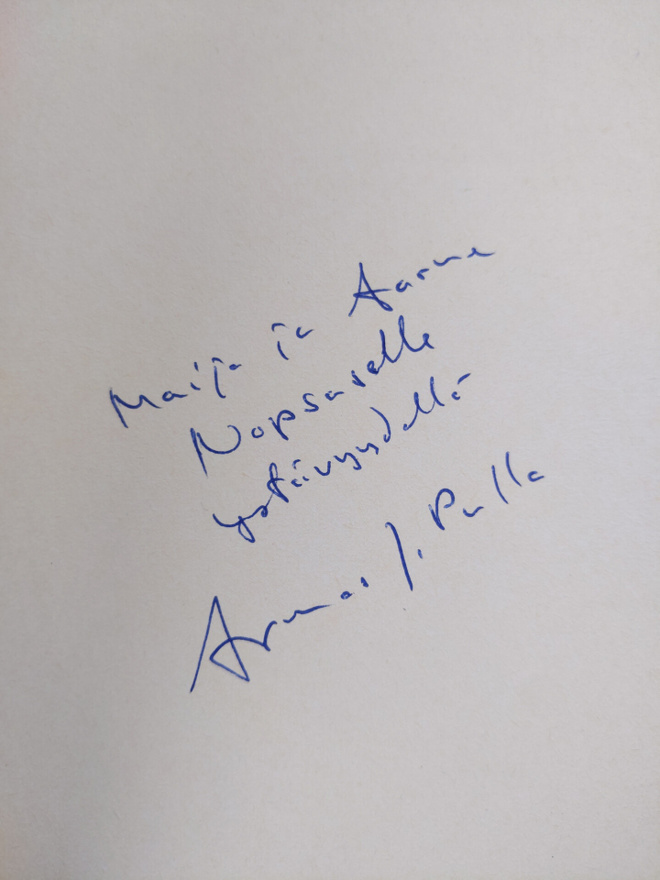 Maija ja Aarne
Nopsaselle
ystävyydellä
Armas J. Pulla